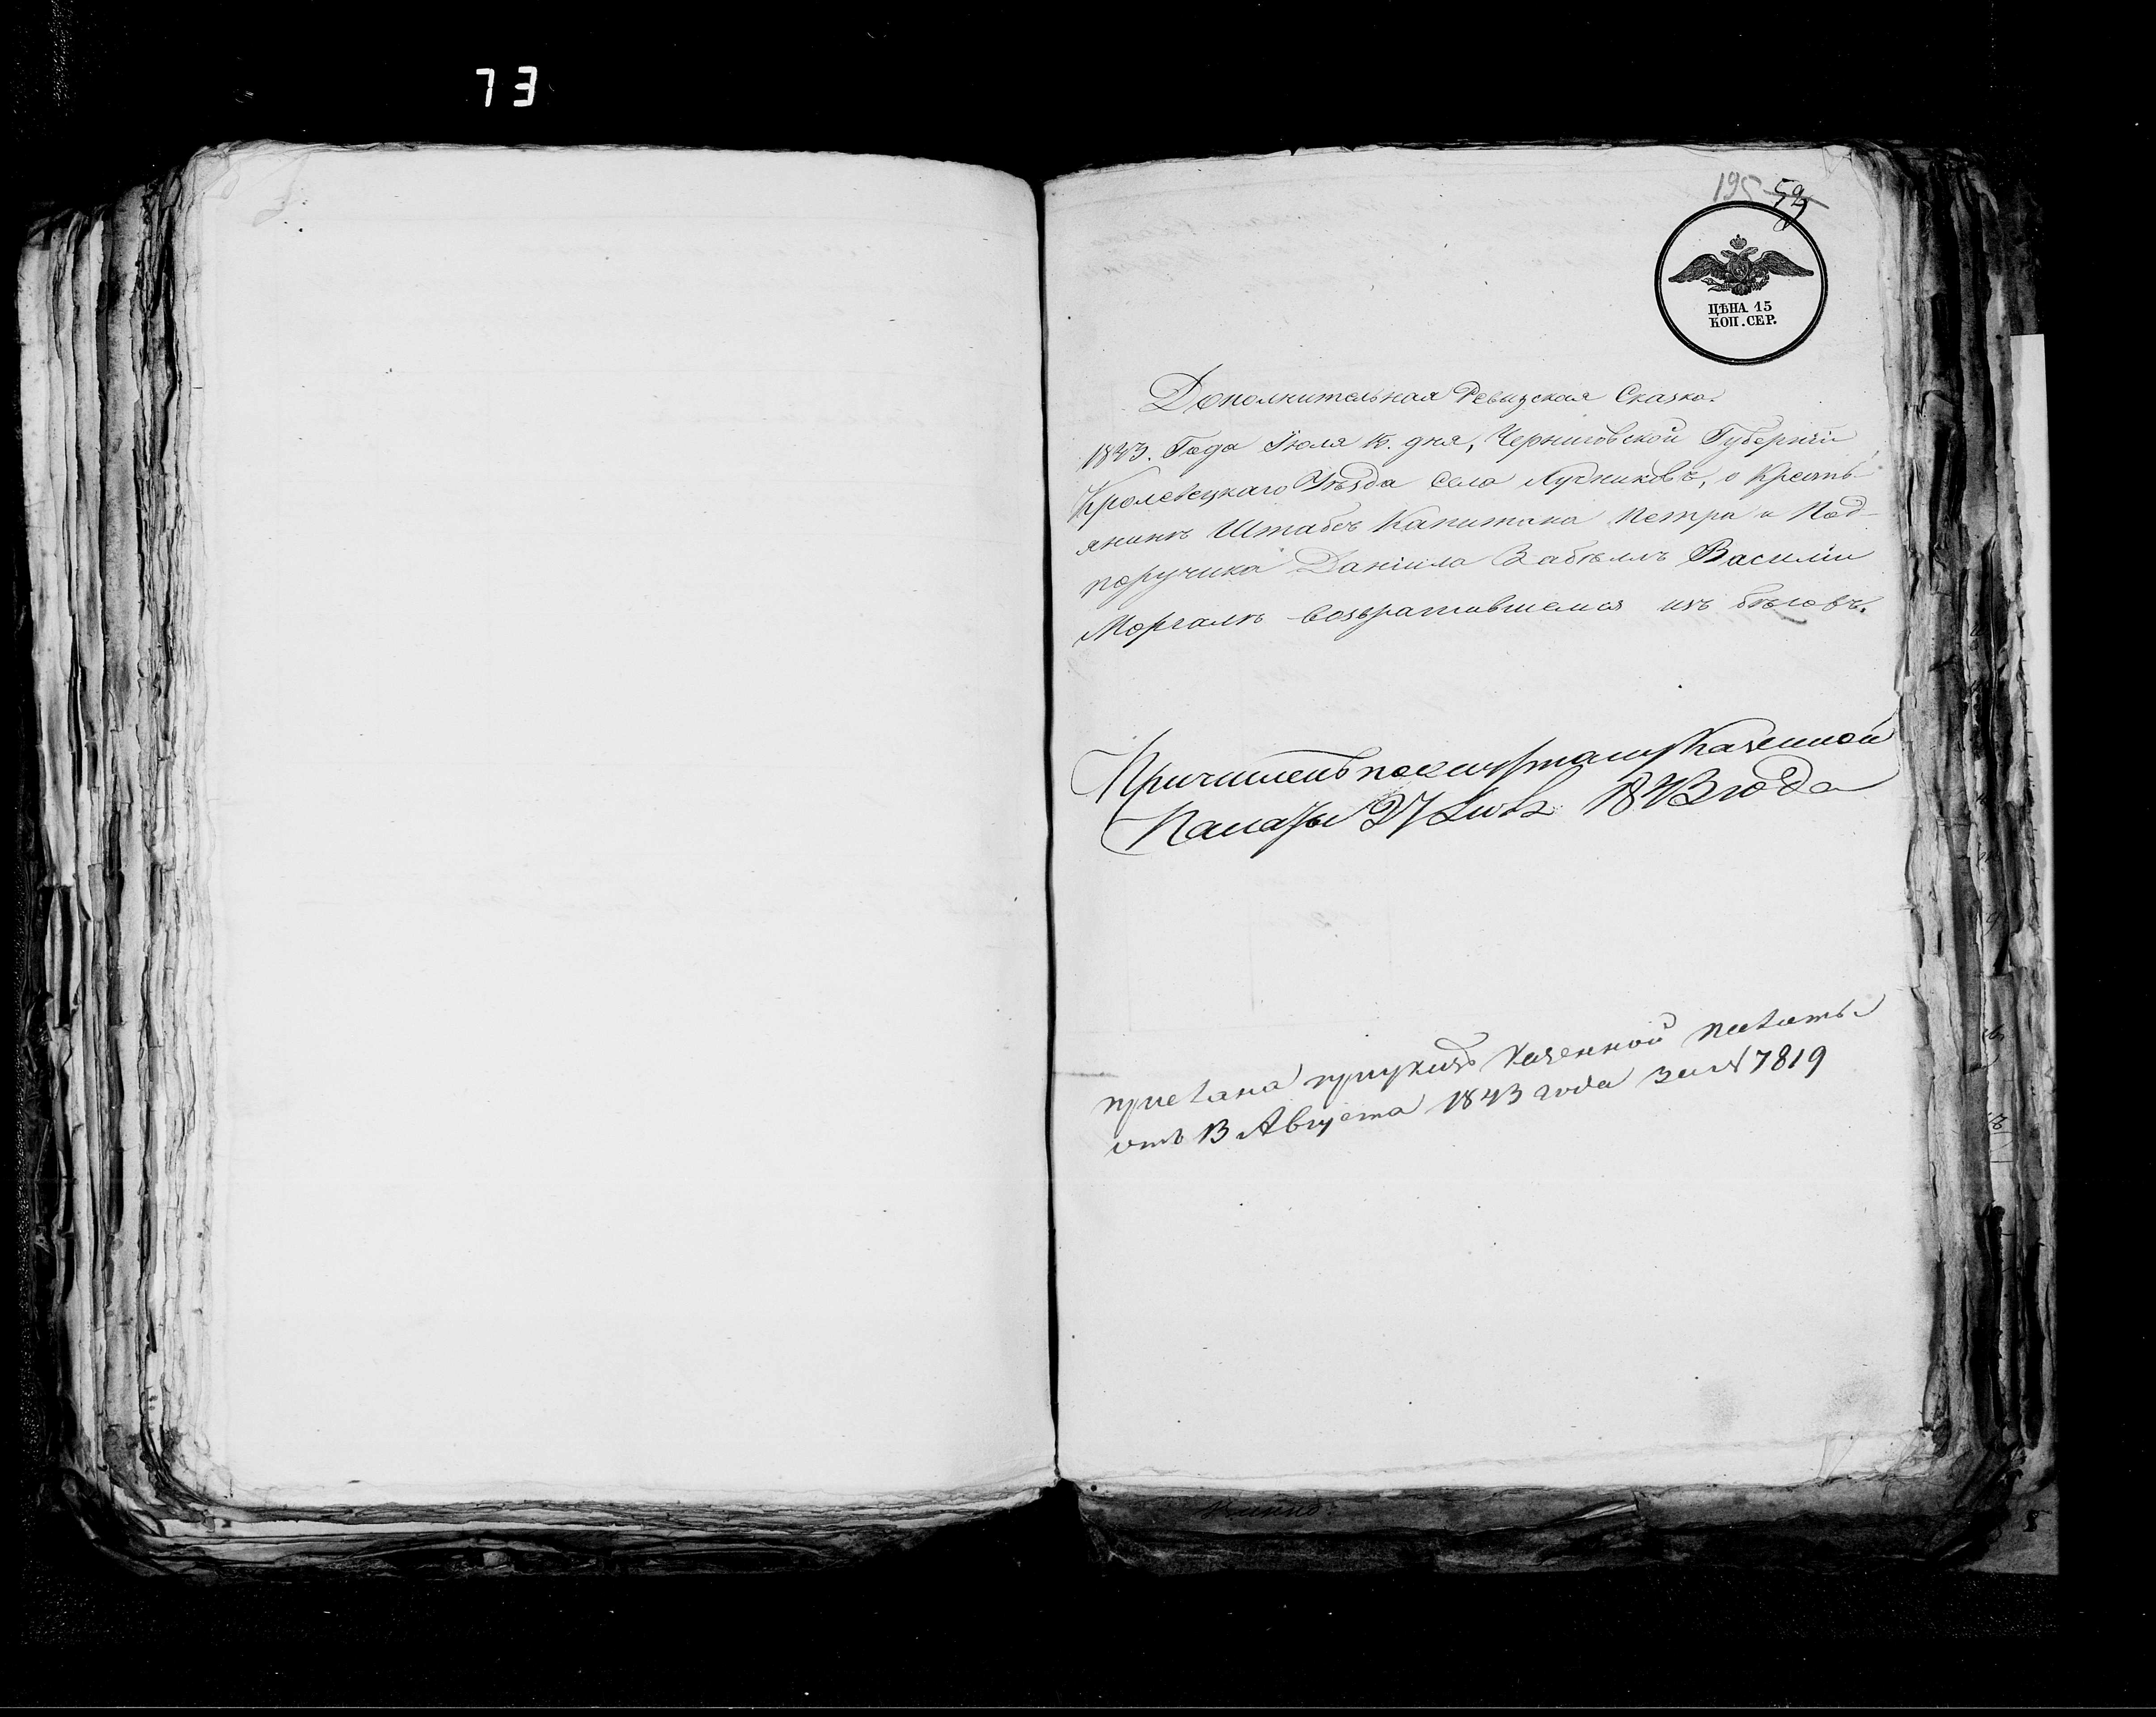 73
195 59
ЦѢНА 15
КОП. СЕР.
Дополнительная Ревизская Сказка.
1843. Года Іюля 15. дня, Черниговской Губерніи,
Кролевецкаго Уѣзда Села Лучниковъ, о Кресть-
янинѣ Штабсъ Капитана Петра и Под-
поручика Даніила Забѣлъ Василіи
Моргалѣ возвратившемся изъ бѣговъ.
Причисленъ по Казенной
Палаты 27 1843 года
прислана при указѣ Казенной палаты
отъ 13 Августа 1843 года за № 7819